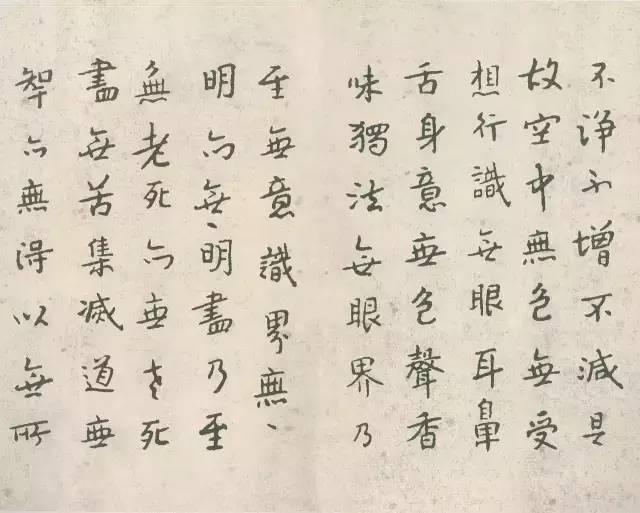 不淨不增不減是
故空中無色無受
想行識無眼耳鼻
舌身意無色聲香
味獨法無眼界乃
至無意識界無、
明亦無、明盡乃至
無老死亦無老死
盡無苦集滅道無
智亦無得以無所